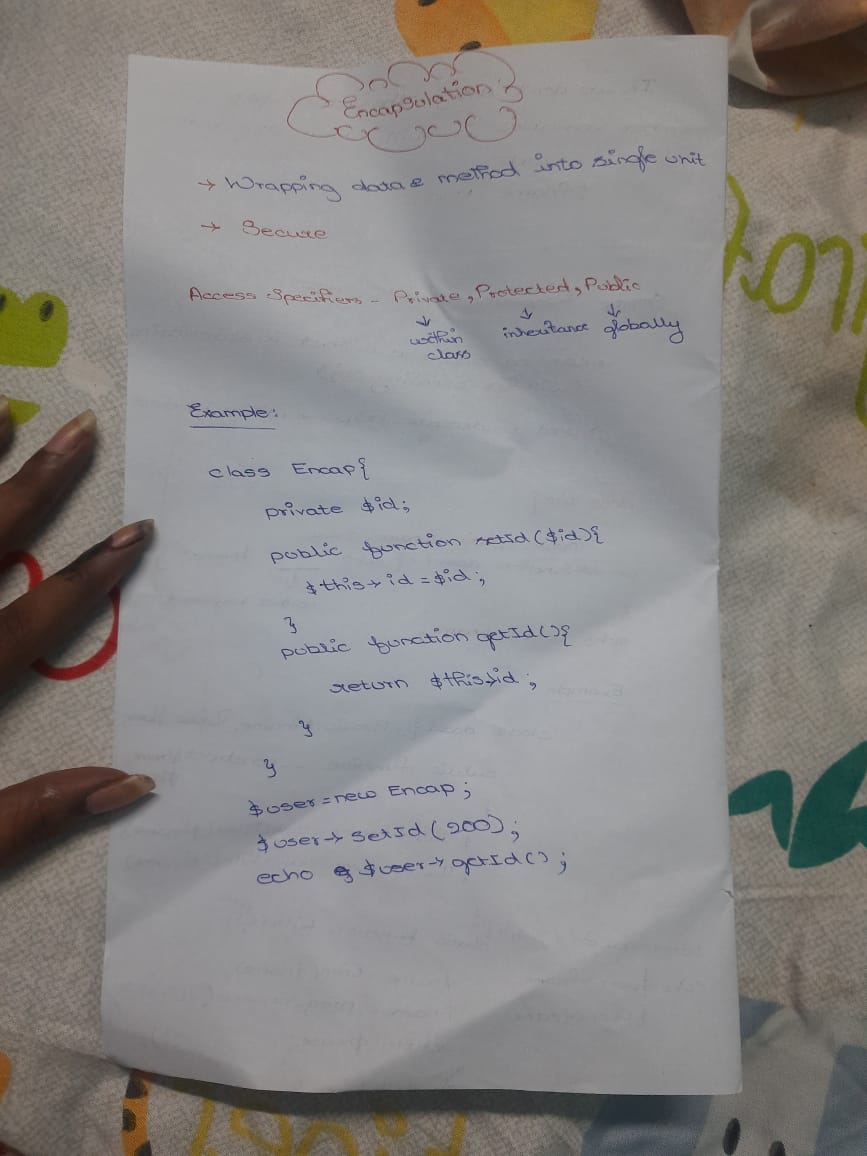 Encapsulation:
→ Wrapping data & method into single unit
→ Secure
Access Specifiers - Private, Protected, Public
↓ ↓ ↓
within class inheritance globally
Example:
class Encap{
private $id;
public function setId($id){
$this→id=$id;
}
public function getId(){
return $this→id;
}
}
$user=new Encap;
$user→setId(200);
echo $user→getId();